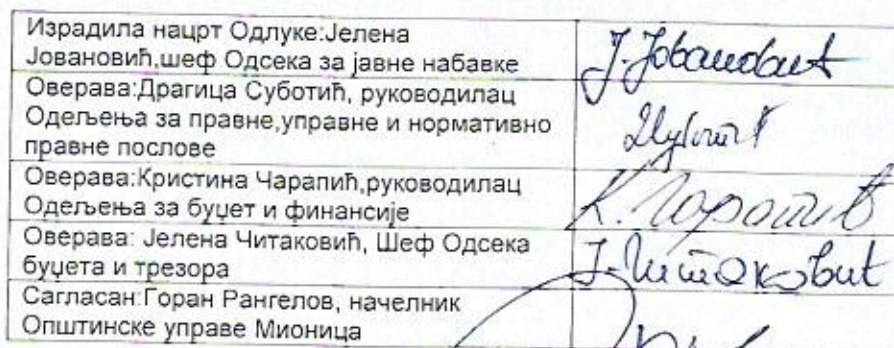 Израдила нацрт Одлуке:Јелена
Јовановић,шеф Одсека за јавне набавке
Ј.Јовановић
Оверава:Драгица Суботић, руководилац
Одељења за правне,управне и нормативно
правне послове
Оверава:Кристина Чарапић,руководилац
Одељења за буџет и финансије
Оверава: Јелена Читаковић, Шеф Одсека
буџета и трезора
Ј-Читаковић
Сагласан:Горан Рангелов, начелник
Општинске управе Мионица